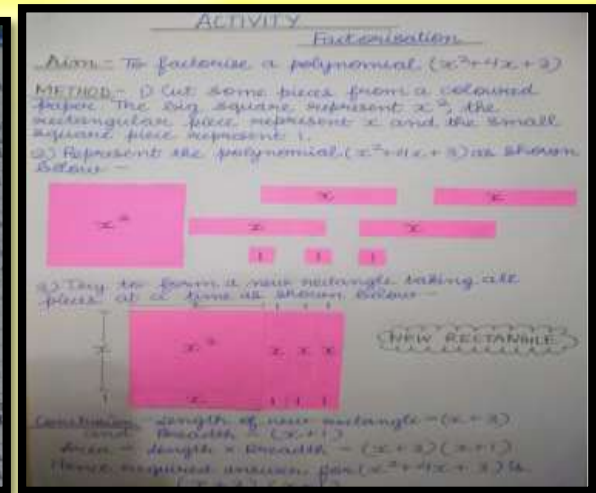 ACTIVITY
Factorisation
Aim - To factorise a polynomial (x²+4x+3)
METHOD - 1) Cut some pieces from a coloured
paper The big square represent x², the
rectangular piece represent x and the small
square piece represent 1.
2) Represent the polynomial (x²+4x+3) as shown
below -
x x
x² x x
1 1 1
3) Try to form a new rectangle taking all
pieces at a time as shown below -
x 1 1 1
x x² x x x
NEW RECTANGLE
1 x 1 1 1
Conclusion - Length of new rectangle = (x+3)
and Breadth = (x+1)
Area = Length x Breadth = (x+3)(x+1)
Hence required answer for (x²+4x+3) is
(x+3)(x+1)